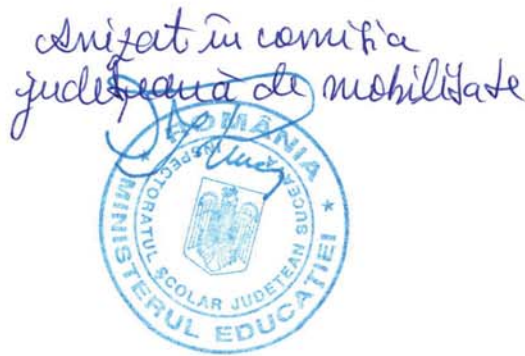 Avizat în comisia
județeană de mobilitate
* ROMÂNIA *
MINISTERUL EDUCAȚIEI
INSPECTORATUL ȘCOLAR JUDEȚEAN SUCEAVA